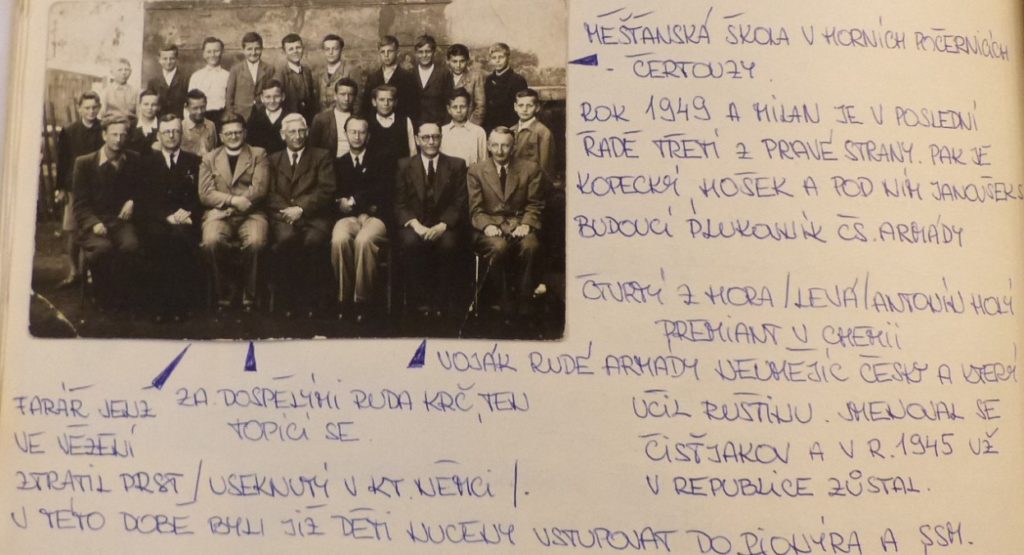 MĚŠŤANSKÁ ŠKOLA V HORNÍCH POČERNICÍCH
- ČERTOUZY.
ROK 1949 A MILAN JE V POSLEDNÍ
ŘADĚ TŘETÍ Z PRAVÉ STRANY. PAK JE
KOPECKÝ, HOŠEK A POD NÍM JANOUŠEK S
BUDOUCÍ PLUKOVNÍK ČS. ARMÁDY
ČTVRTÝ Z HORA /LEVÁ/ ANTONÍN HOLÝ
PREMIANT V CHEMII
VOJÁK RUDÉ ARMÁDY NEUMĚJÍC ČESKY A KTERÝ
UČIL RUŠTINU. JMENOVAL SE
ČISŤJAKOV A V R. 1945 UŽ
V REPUBLICE ZŮSTAL.
ZA DOSPĚLÝMI RUDA KRČ, TEN
TOPÍCÍ SE.
FARÁŘ JENŽ
VE VĚZENÍ
ZTRATIL PRST / USEKNUTÝ V KT. NĚMCI /.
V TÉTO DOBĚ BYLI JIŽ DĚTI NUCENY VSTUPOVAT DO PIONÝRA A SSM.